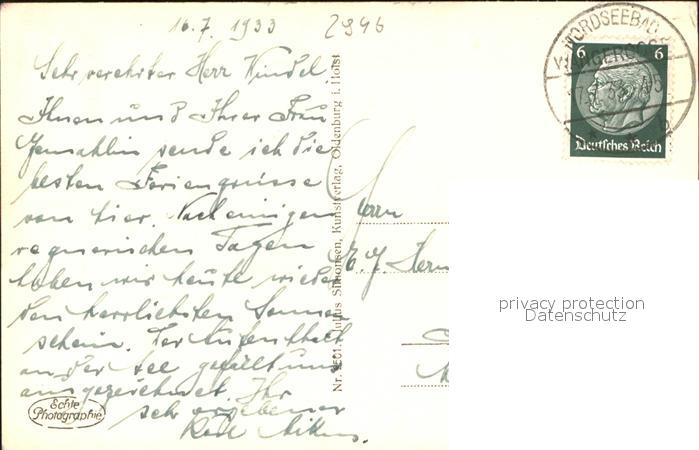 16.7. 1933
2896
Sehr verehrter Herr Windel.
Ihnen und Ihrer Frau
Gemahlin sende ich die
besten Feriengrüsse
von hier. Nach einigen
regnerischen Tagen
haben wir heute wieder
den herrlichsten Sonnen
schein. Der Aufenthalt
an der See gefällt uns
ausgezeichnet. Ihr
sehr ergebener
Echte
Photographie
Julius Simonsen, Kunstverlag, Oldenburg i. Holst
Herrn
NORDSEEBAD
6 6
Deutsches Reich
privacy protection
Datenschutz